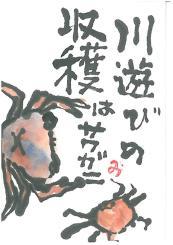 川遊びの
収穫は
サワガニ
み